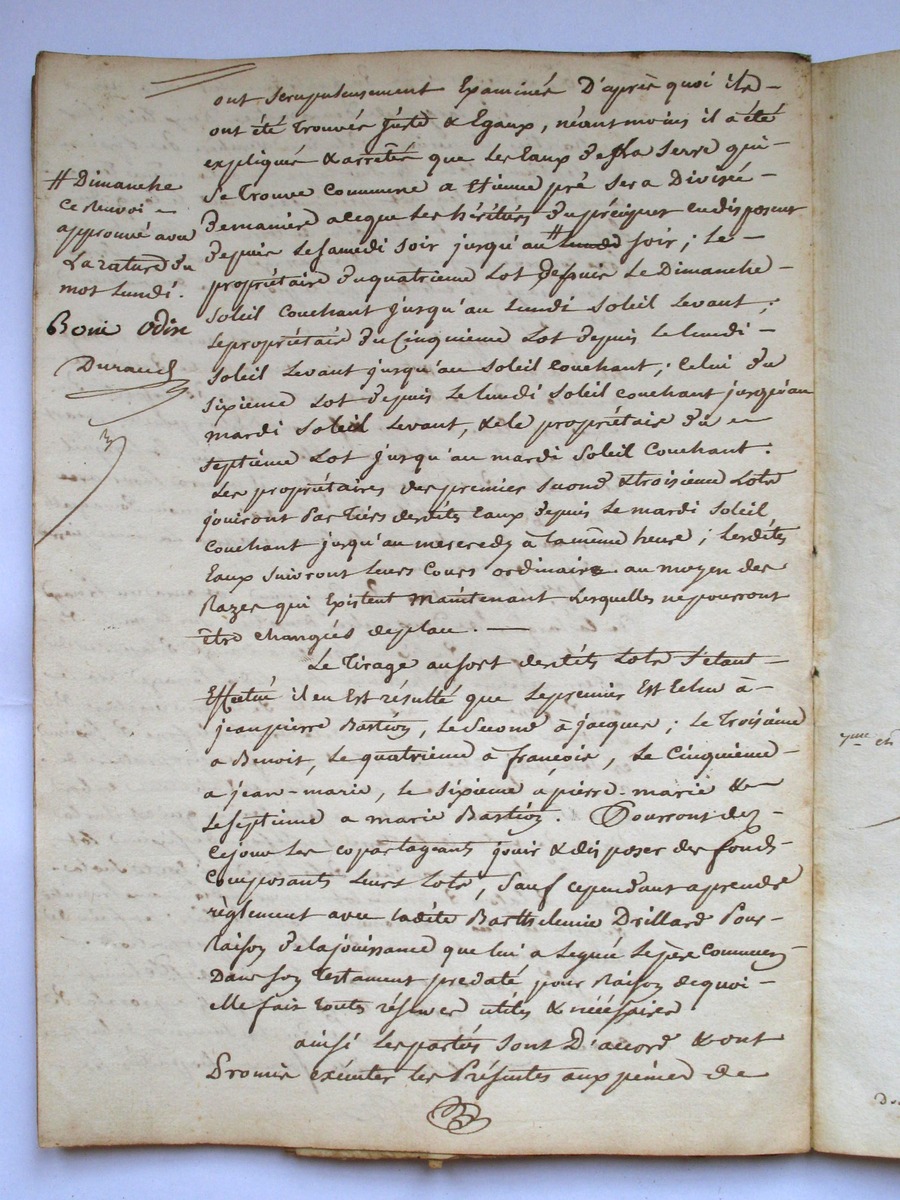 ont scrupuleusement Examinés D'aprés quoi ils
ont été trouvés juste & Egaux, néantmoins il a été
expliqués & arretés que les Eaux de la Serre qui
se trouve Commune a Etienne pré sera Divisée
de maniere a ceque les héritiers du préciput en disposent
depuis le samedi soir jusqu'au # lundi soir; le
propriétaire du quatrieme Lot depuis le Dimanche
soleil Couchant jusqu'au Lundi soleil Levant;
le propriétaire du Cinquieme Lot depuis le lundi
soleil Levant jusqu'au soleil couchant; Celui du
sixieme Lot depuis le lundi soleil couchant jusqu'au
mardi soleil Levant, & le propriétaire du
septième Lot jusqu'au mardi soleil Couchant.
Les propriétaires des premier second & troisieme Lots
jouiront par tiers desdites Eaux depuis le mardi soleil
couchant jusqu'au mercredy à la même heure; Lesdites
Eaux suivront leurs Cours ordinaire au moyen des
Razes qui Existent maintenant Lesquelles ne pourront
être changiés de place.
Le tirage au sort desdits Lots s'étant
Effectué il en Est résulté que le premier Est Echu à
jean pierre Bastion, le second à jacques; le troisième
a Benoit, le quatrieme à françois, le Cinquieme
a jean-marie, le sixieme a pierre-marie &
le septieme a marie Bastion. Pourront dez
ce jour les copartageants jouir & disposer des fonds
composants leurs Lots, sauf cependant a prendre
règlement avec ladite Barthelemie Drillard Pour
Raison de la jouissance que lui a Legué le père commun
Dans son testament predaté pour Raison de quoi
Elle fait toutes réserves utiles & nécéssaires
ainsi les parties sont D'accord & ont
Promis exécuter les Présentes aux peines de
# Dimanche
ce renvoi
approuvé avec
La rature du
mot Lundi.
Durand
7me et